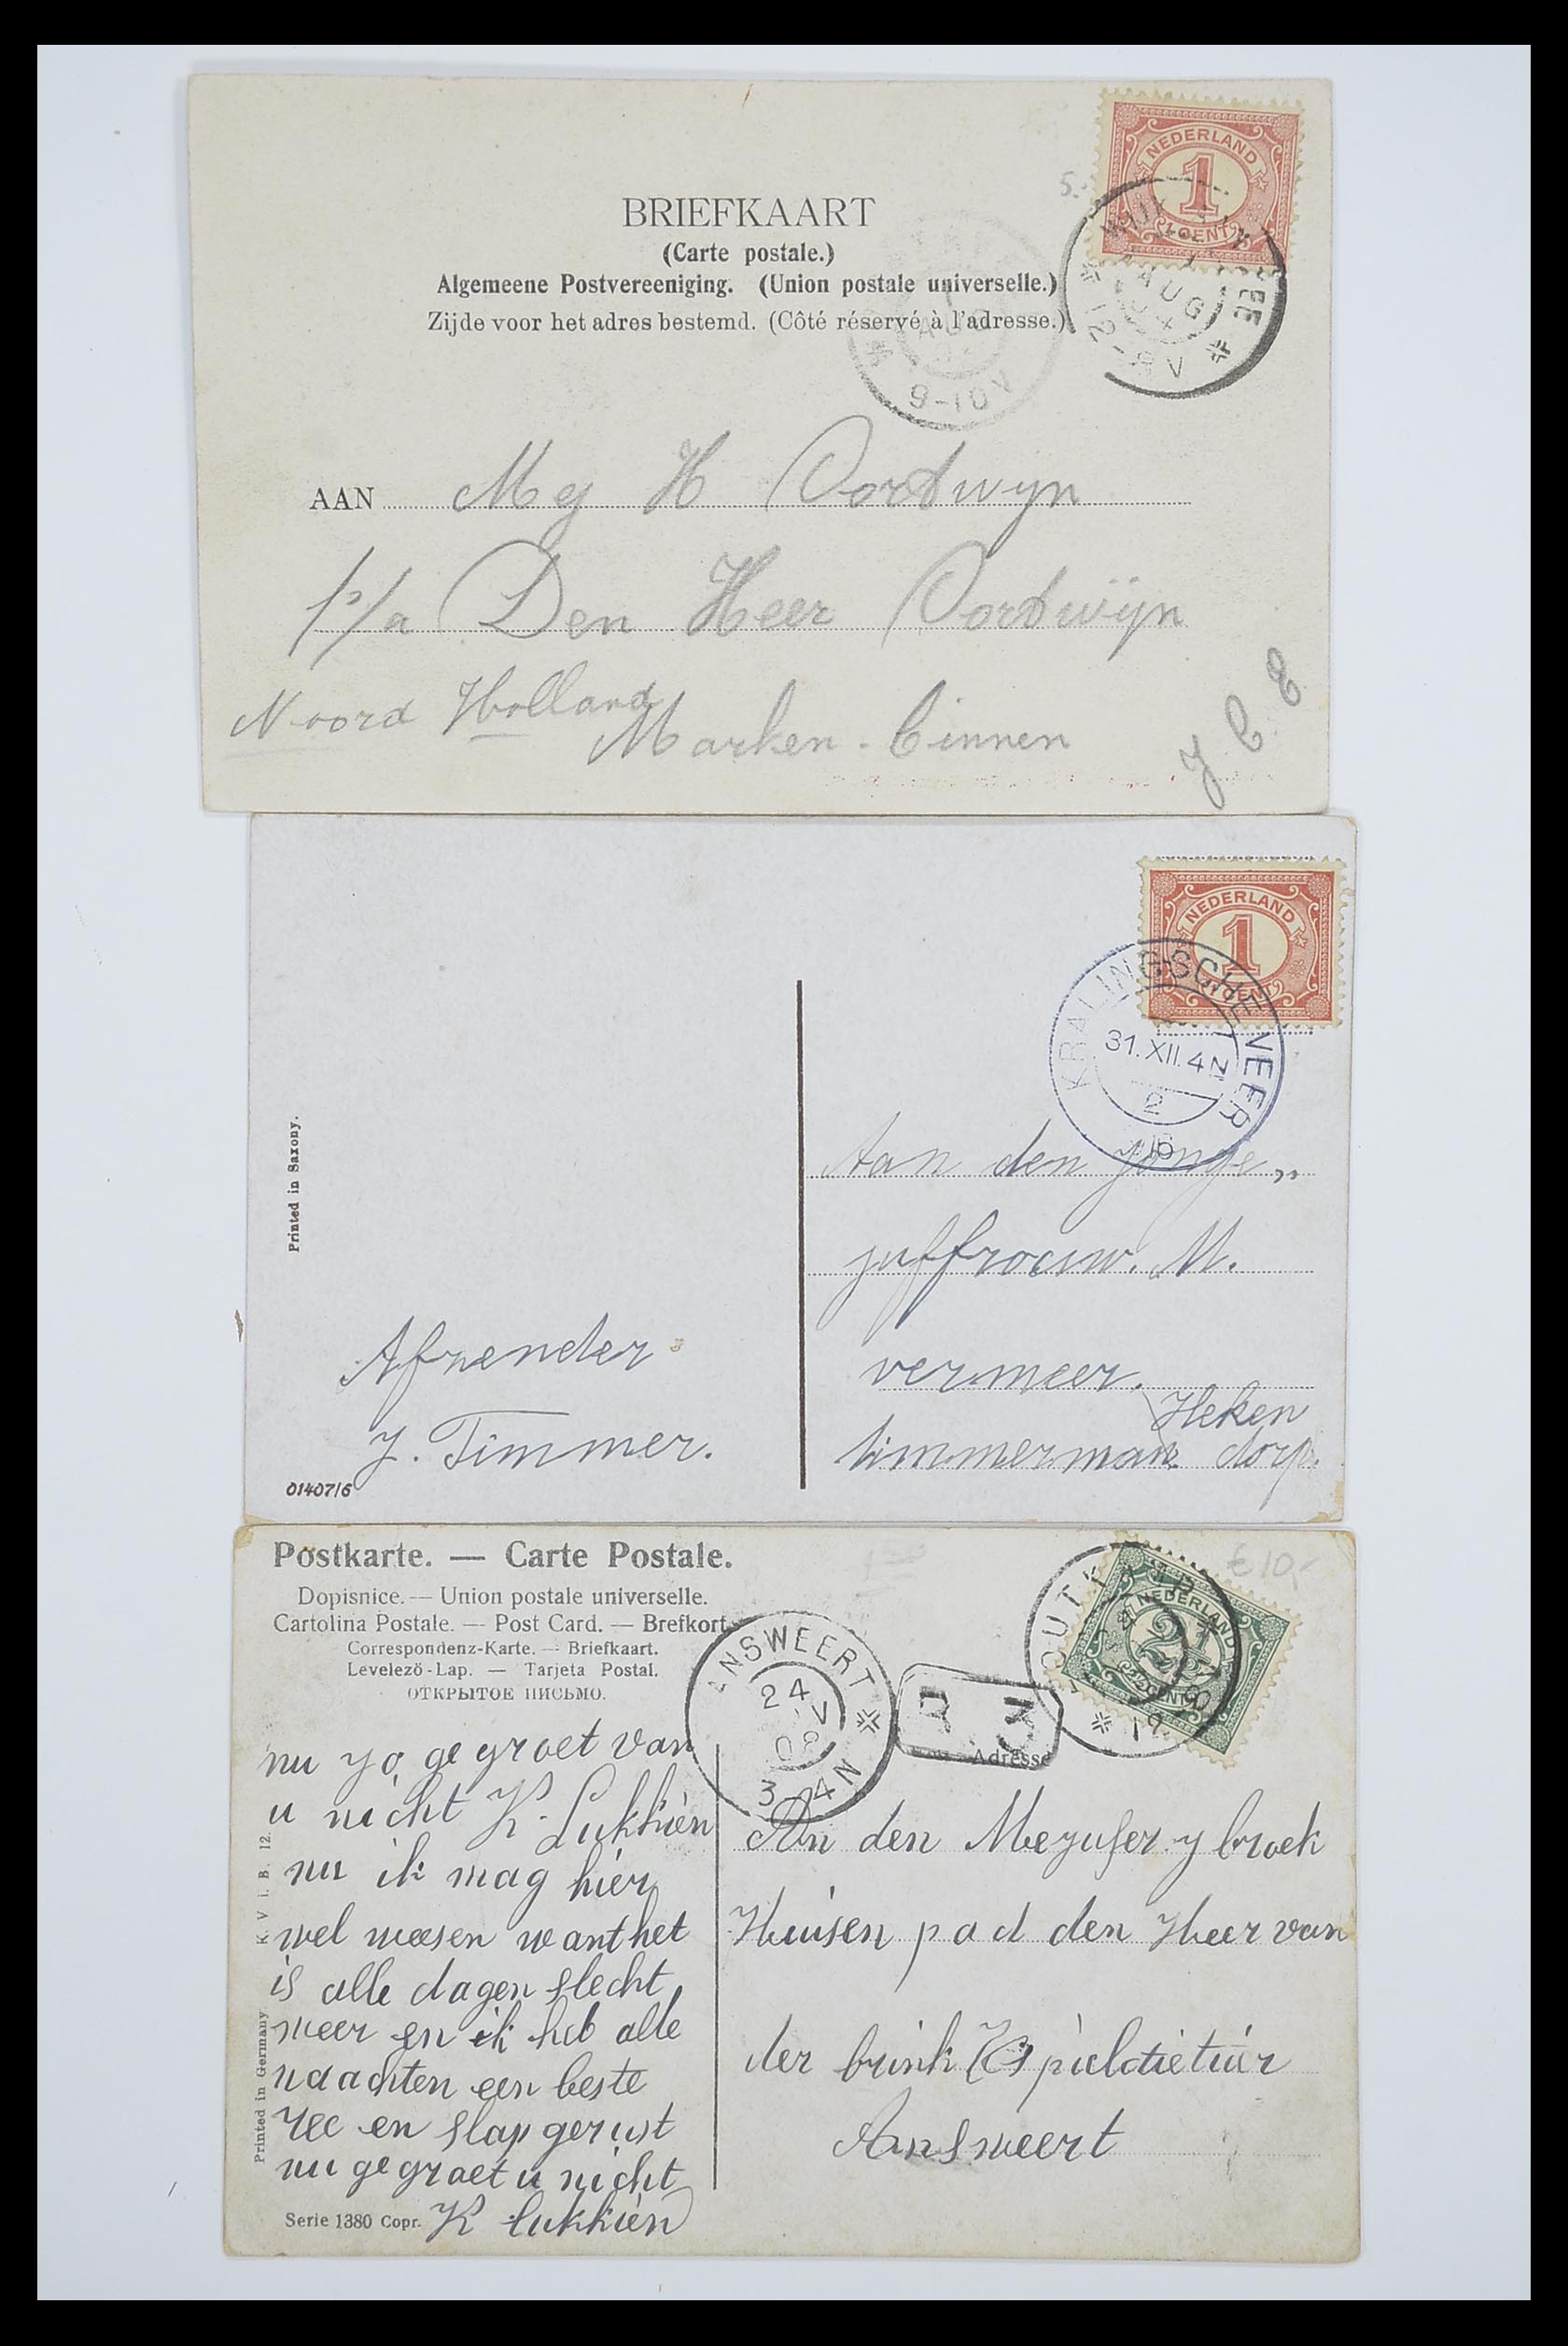 BRIEFKAART
(Carte postale.)
Algemeene Postvereeniging. (Union postale universelle.)
Zijde voor het adres bestemd. (Côté réservé à l'adresse.)
NEDERLAND
1
CENT
AUG
9-10V
5.-
AAN Mej H Oortwyn
p/a Den Heer Oortwijn
Noord Holland
Marken-Binnen
NEDERLAND
1
CENT
KRALINGSCHE VEER
31.XII.4N
2
Printed in Saxony.
Aan den jonge„
juffrouw. M.
vermeer.
Heken
timmerman. dorp.
Afzender
J. Timmer.
01407/6
Postkarte. — Carte Postale.
Dopisnice. — Union postale universelle.
Cartolina Postale. — Post Card. — Brefkort
Correspondenz-Karte. — Briefkaart.
Levelező-Lap. — Tarjeta Postal.
ОТКРЫТОЕ ПИСЬМО.
€10,-
NEDERLAND
2½
CENT
ANSWEERT
24
V
08
3-4N
Adresse
nu yo gegroet van
u nicht K Lukkien
nu ik mag hier
wel weesen want het
is alle dagen slecht
weer en ik heb alle
naachten een beste
zee en slap gerust
nu gegroet u nicht
K Lukkien
K. V. i. B. 12.
Printed in Germany
Serie 1380 Copr.
An den Mejufer y broek
Huisen p a d den Heer van
der brink
Answeert